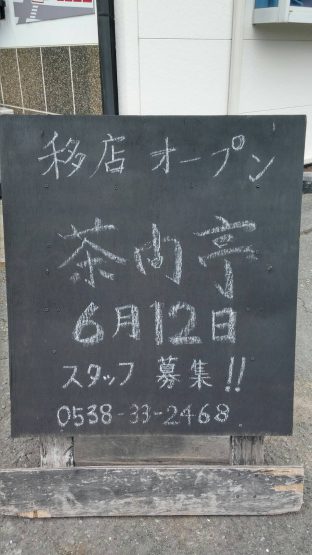 移店 オープン
茶向亭
6月12日
スタッフ 募集!!
0538-33-2468